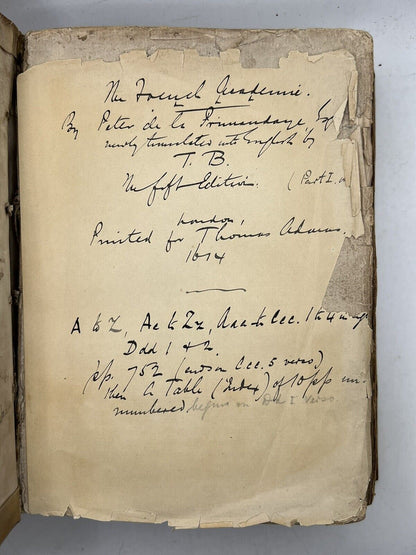 The French Academie.
By Peter de la Primaudaye, Esq
newly translated into English by
T. B.
The fift Edition. (Part I.
London,
Printed for Thomas Adams.
1614
A to Z, Aa to Zz, Aaa to Ccc. 1 to 4 in
Ddd 1 & 2.
pp. 752 (ends on Ccc. 5 verso)
then A Table (Index) of 10 pp un-
numbered begins on Ddd 1 verso.